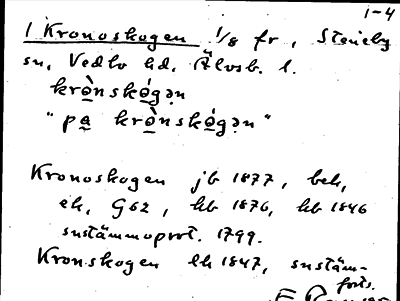 1-4
1 Kronoskogen 1/8 fr, Steneby
sn, Vedbo hd, Älvsb. l.
krò̱nskó̱gən
"pa̱ krò̱nskó̱gən"
Kronoskogen jb 1877, beh,
ek, G62, hb 1876, hb 1846
snstämmoprot. 1799.
Kronskogen lh 1847, snstäm-
forts.